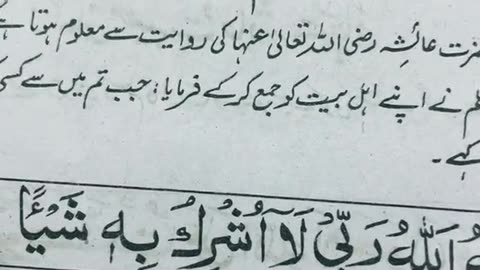 عائشہ رضی اللہ تعالیٰ عنہا کی روایت سے معلوم ہوتا
نے اپنے اہل بیت کو جمع کر کے فرمایا: جب تم میں سے کسی
کہے۔
اَللّٰهُ رَبِّیْ لَاۤ اُشْرِكُ بِهٖ شَیْـًٔا